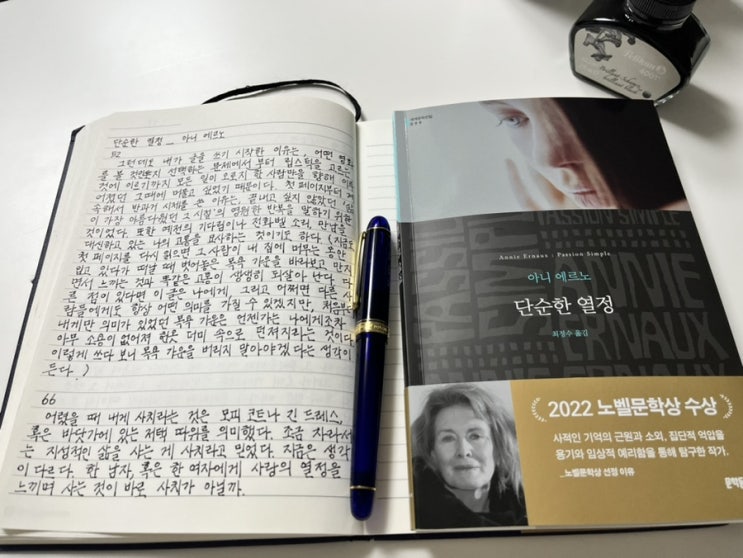 단순한 열정 _ 아니 에르노
52
그런데도 내가 글을 쓰기 시작한 이유는, 어떤 영화
를 볼 것인지 선택하는 문제에서부터 립스틱을 고르는
것에 이르기까지 모든 일이 오로지 한 사람만을 향해 이루
어졌던 그때에 머물고 싶었기 때문이다. 첫 페이지부터 계
속해서 반과거 시제를 쓴 이유는, 끝내고 싶지 않았던 '삶
이 가장 아름다웠던 그 시절'의 영원한 반복을 말하기 위한
것이었다. 또한 예전의 기다림이나 전화벨 소리, 만남을
대신하고 있는 나의 고통을 묘사하는 것이기도 하다. (지금도
첫 페이지를 다시 읽으면 그 사람이 내 집에 머무는 동안
입고 있다가 떠날 때 벗어놓은 목욕 가운을 바라보고 만지
면서 느끼는 것과 똑같은 고통이 생생히 되살아 난다. 다
른 점이 있다면 이 글은 나에게, 그리고 어쩌면 다른 사
람들에게도 항상 어떤 의미를 가질 수 있겠지만, 지금부터
내게만 의미가 있었던 목욕 가운은 언젠가는 나에게조차
아무 소용이 없어져 헌옷 더미 속으로 던져지리라는 것이다.
이렇게 쓰다 보니 목욕 가운을 버리지 말아야겠다는 생각이
든다.)
66
어렸을 때 내게 사치라는 것은 모피 코트나 긴 드레스,
혹은 바닷가에 있는 저택 따위를 의미했다. 조금 자라서
는 지성적인 삶을 사는 게 사치라고 믿었다. 지금은 생각
이 다르다. 한 남자, 혹은 한 여자에게 사랑의 열정을
느끼며 사는 것이 바로 사치가 아닐까.
Pelikan
4001
Brilliant-Schwarz
brilliant black
Annie Ernaux : Passion Simple
아니 에르노
단순한 열정
최정수 옮김
PASSION SIMPLE
ANNIE
ERNAUX
2022 노벨문학상 수상
사적인 기억의 근원과 소외, 집단적 억압을
용기와 임상적 예리함을 통해 탐구한 작가.
_노벨문학상 선정 이유
문학동